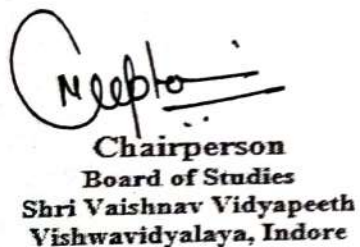 Chairperson
Board of Studies
Shri Vaishnav Vidyapeeth
Vishwavidyalaya, Indore